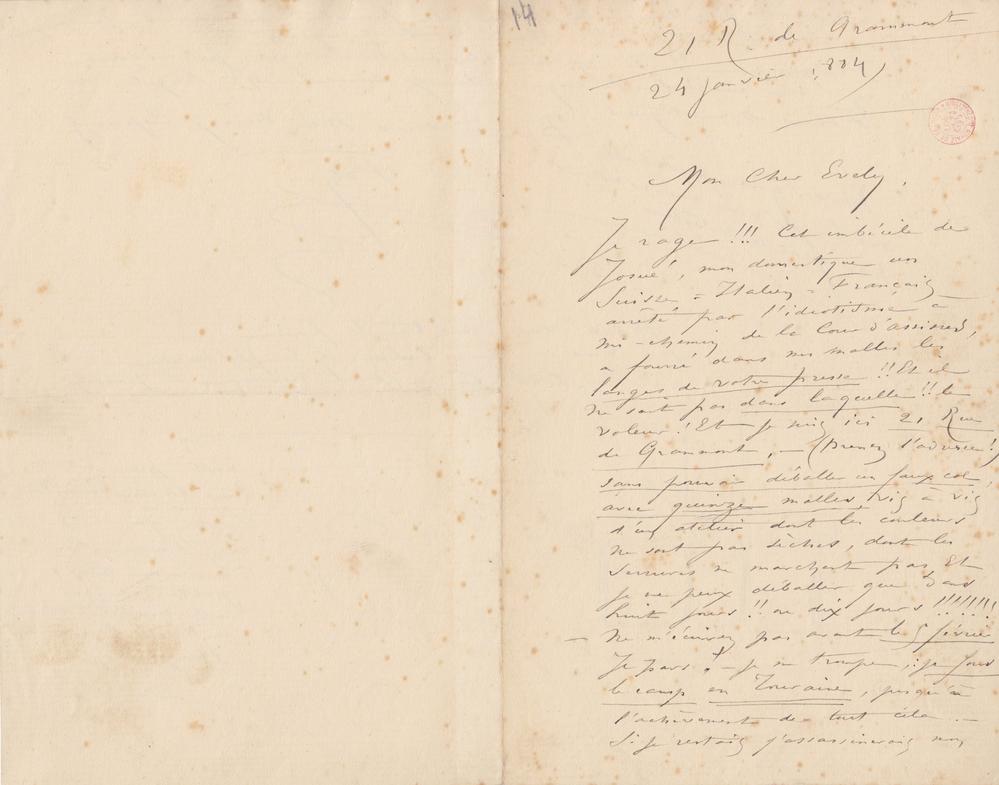 14
21 R. de Grammont
24 janvier 1884
Mon Cher Evely,
Je rage !!! Cet imbécile de
Josué, mon domestique un
Suisse = Italien = Français
arrêté par l'idiotisme à
mi-chemin de la Cour d'assises,
a fourré dans mes malles les
langes de votre presse !! Et il
ne sait pas dans laquelle !! le
voleur ! Et je suis ici 21 Rue
de Grammont, — (Prenez l'adresse !)
sans pouvoir déballer un faux col,
avec quinze malles vis à vis
d'un atelier dont les couleurs
ne sont pas sèches, dont les
serrures ne marchent pas Et
je ne peux déballer que dans
huit jours !! ou dix jours !!!!!!!
— Ne m'écrivez pas avant le 5 février
Je pars ! — je me trompe ; je fous
le camp en Touraine, jusqu'à
l'achèvement de tout cela. —
Si je restais j'assassinerais mon